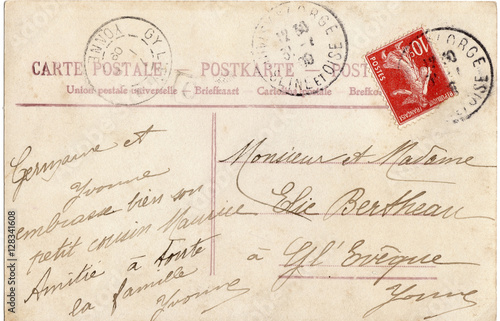 CARTE POSTALE — POSTKARTE — POST
Union postale universelle Briefkaart Cartolina Brefkort
GY L' YONNE
LORGE
12 30
SEINE ET OISE
LORGE
OISE
10c
POSTES
Germaine et
Yvonne
embrasse bien son
petit cousin Maurice
Amitié à toute
la famille
Yvonne
Monsieur et Madame
Elie Bertheau
à Gl'Evêque
Yonne
Adobe Stock | #128341608